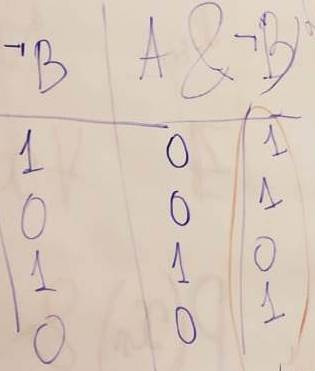 ¬B A & ¬B
1 0 1
0 0 1
1 1 0
0 0 1